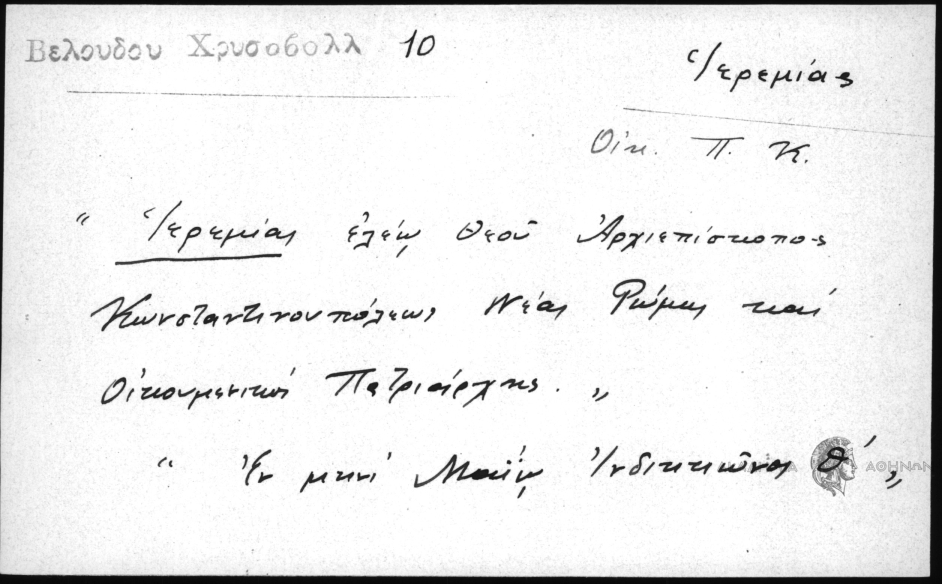 Βελουδου Χρυσοβολλ 10
Ἱερεμίας
Οἰκ. Π. Κ.
" Ἱερεμίας ἐλέῳ Θεοῦ Ἀρχιεπίσκοπος
Κωνσταντινουπόλεως Νέας Ρώμης καί
Οἰκουμενικός Πατριάρχης. "
" Ἐν μηνί Μαΐῳ Ἰνδικτιῶνος θ΄ "
ΑΘΗΝΩΝ